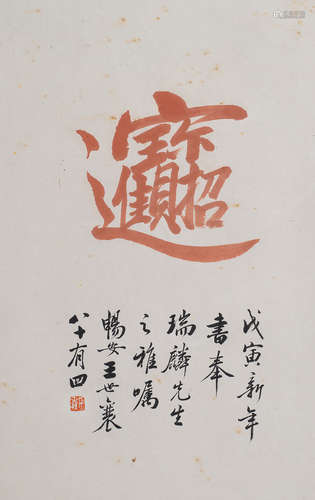 招財進寶
戊寅新年
書奉
瑞麟先生
之雅嘱
暢安王世襄
八十有四